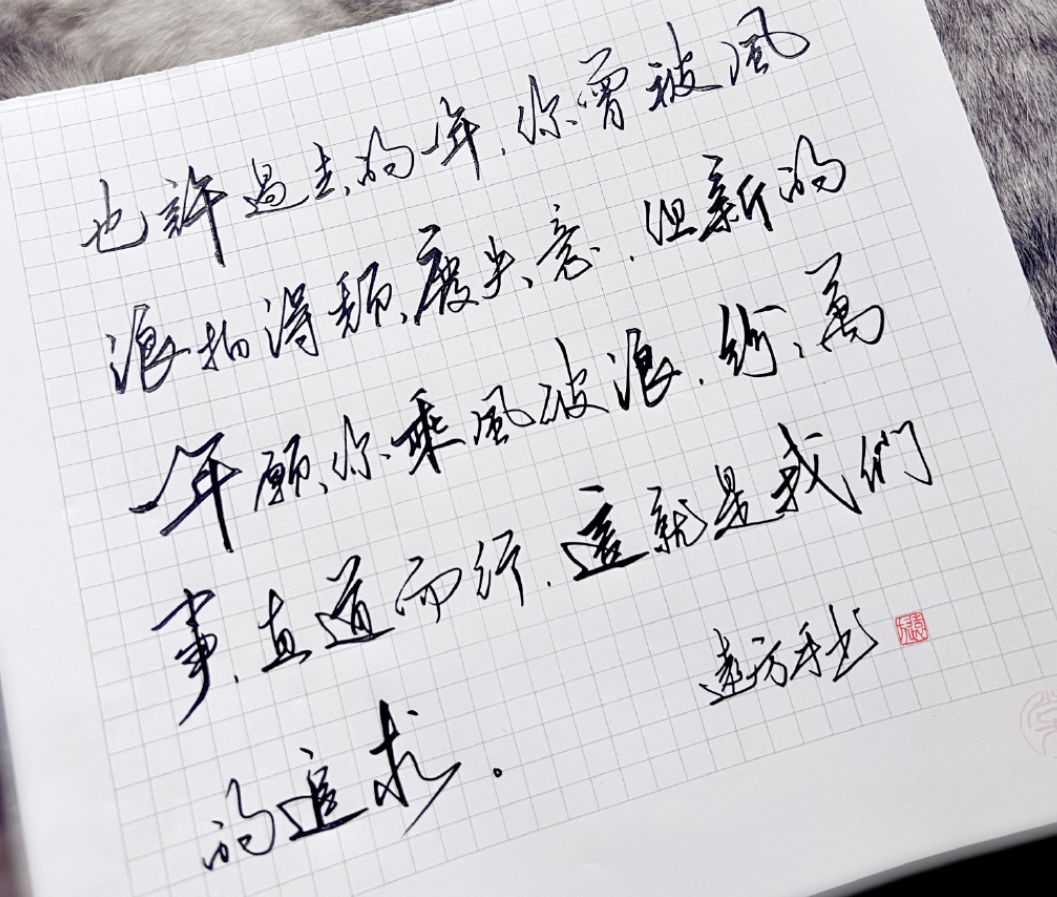 也許過去的一年，你曾被風
浪拍得頹廢失意，但新的
一年願你乘風破浪，約萬
事，直道而行，這就是我們
的追求。
遠方手书